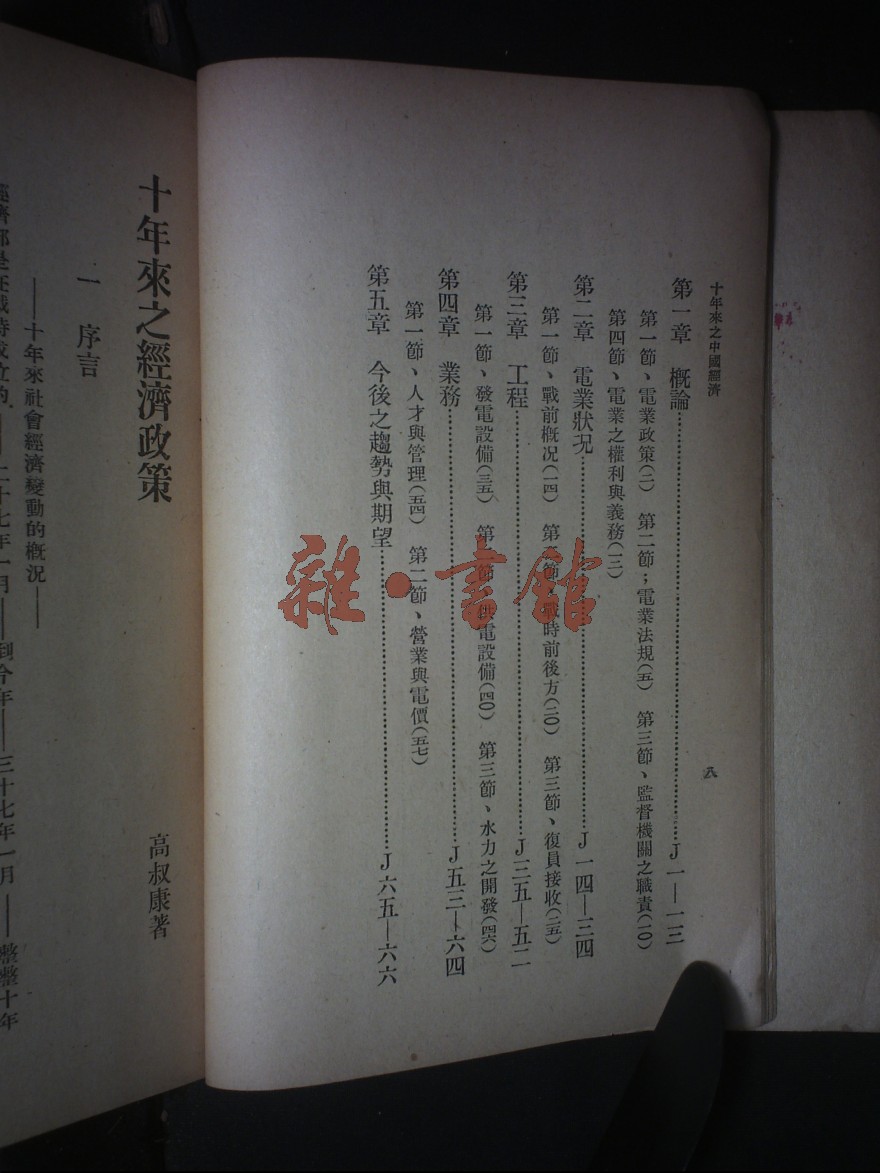 十年來之中國經濟
八
第一章　概論……J 一—一三
第一節、電業政策(二)　第二節；電業法規(五)　第三節、監督機關之職責(一〇)
第四節、電業之權利與義務(一三)
第二章　電業狀況……J 一四—三四
第一節、戰前概況(一四)　第二節、戰時前後方(二〇)　第三節、復員接收(二五)
第三章　工程……J 三五—五二
第一節、發電設備(三五)　第二節、供電設備(四〇)　第三節、水力之開發(四六)
第四章　業務……J 五三—六四
第一節、人才與管理(五四)　第二節、營業與電價(五七)
第五章　今後之趨勢與期望……J 六五—六六
雜·書館
十年來之經濟政策
高叔康著
一　序言
——十年來社會經濟變動的概況——
經濟部是在戰時成立的，——二十七年一月——到今年——三十七年一月——整整十年